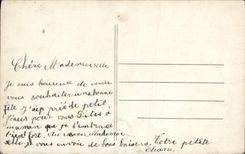 Chère Mademoiselle
Je suis heureuse de venir
vous souhaiter une bonne
fête J'ai prié le petit
Jésus pour vous Dites à
maman que je l'embrasse
bien fort
elle Je vous envoie de bons baisers Votre petite